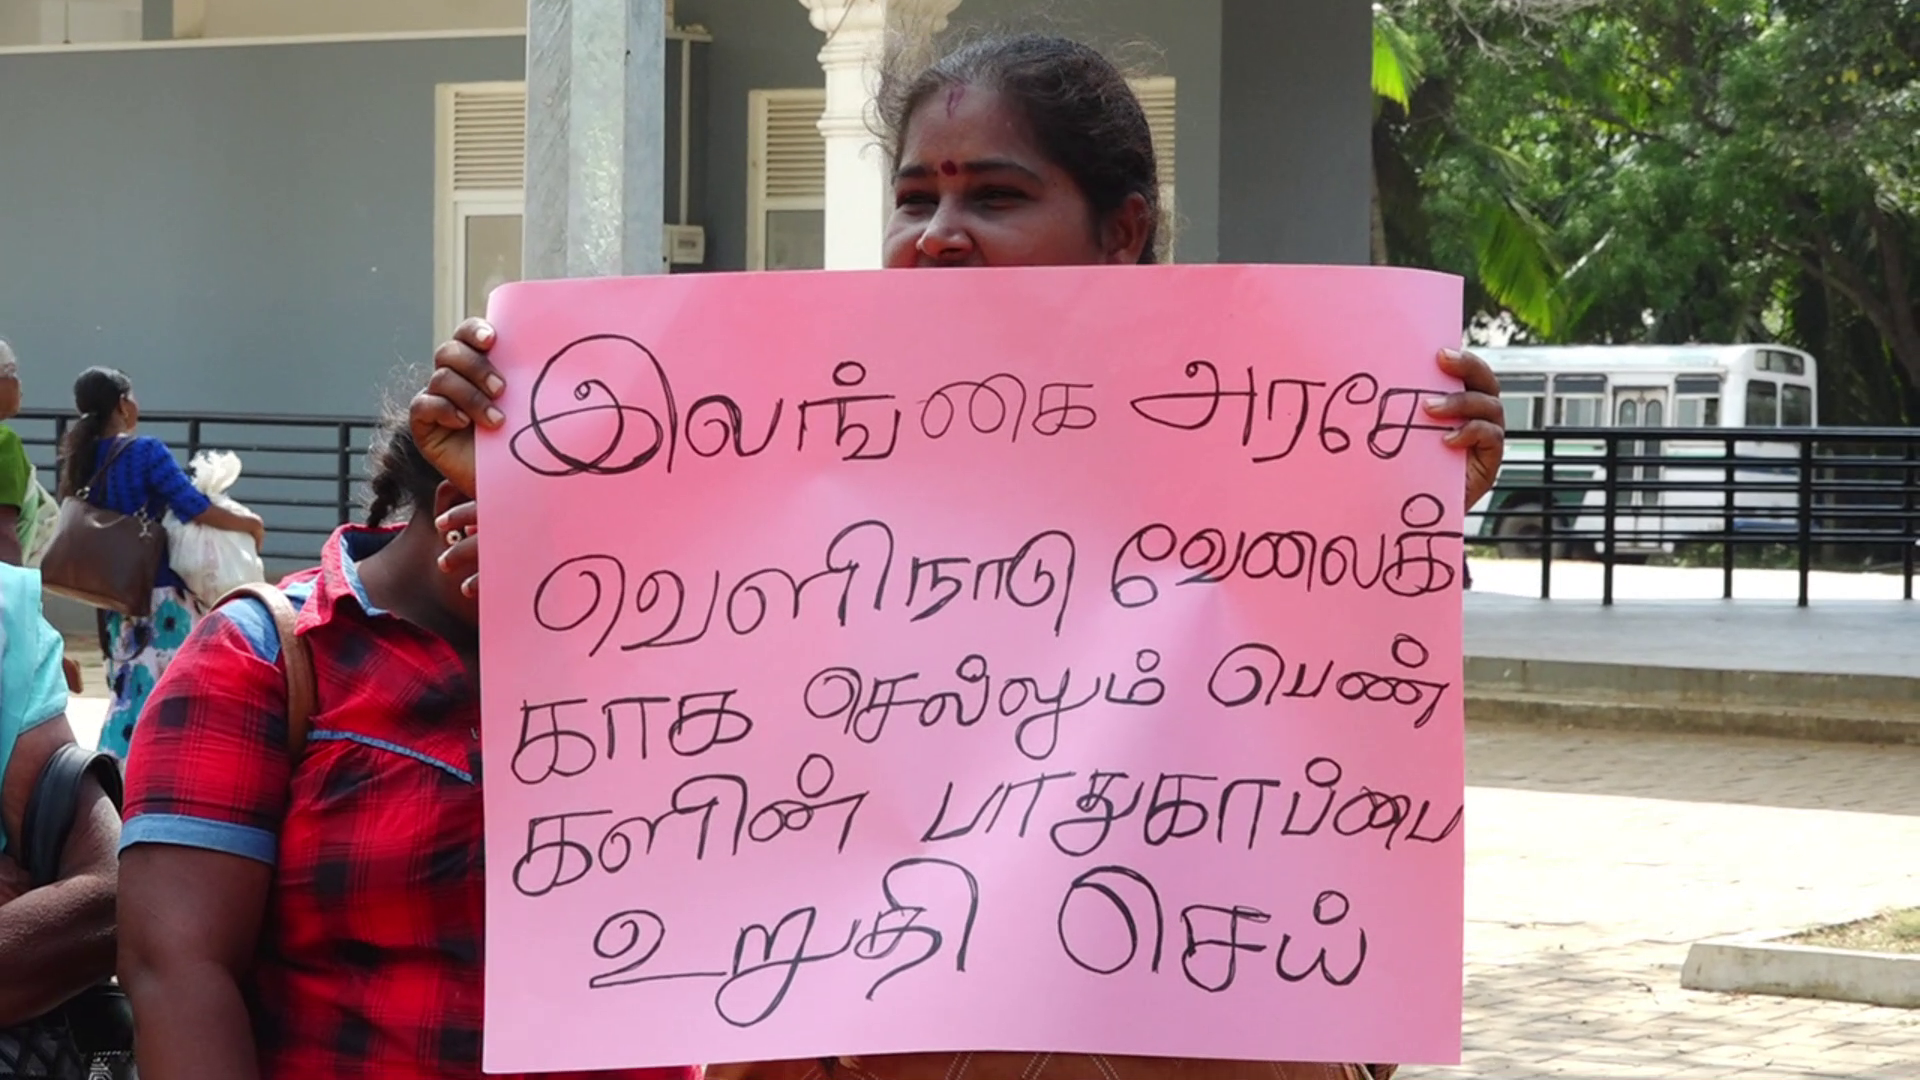 இலங்கை அரசே
வெளிநாடு வேலைக்
காக செல்லும் பெண்
களின் பாதுகாப்பை
உறுதி செய்